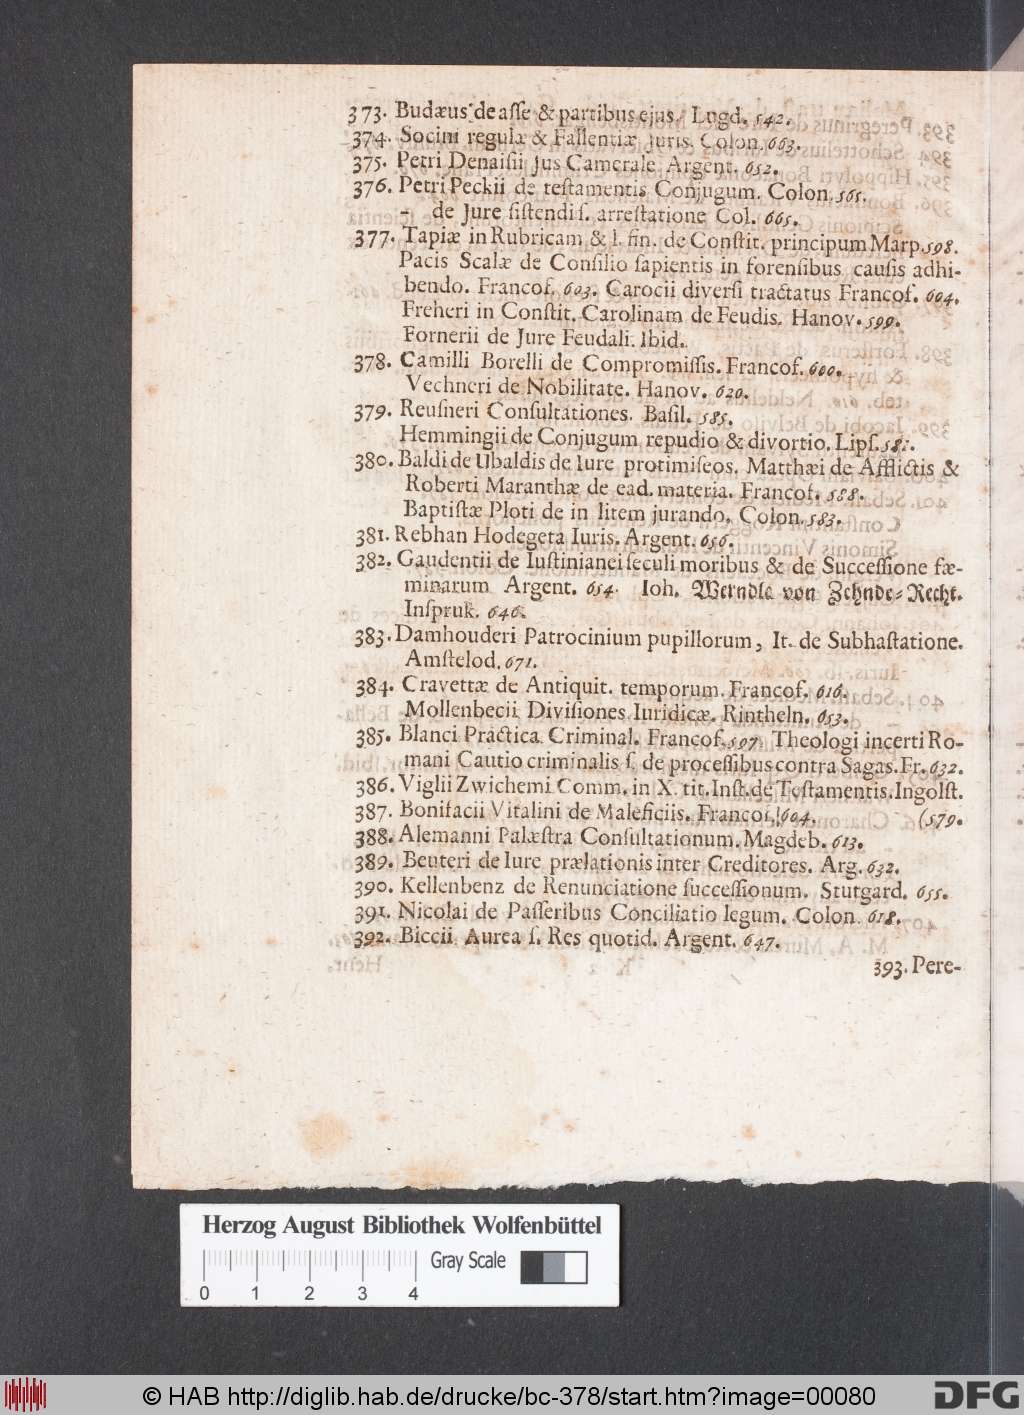 373. Budæus de asse & partibus ejus. Lugd. 542.
374. Socini regulæ & Fallentiæ Juris. Colon. 663.
375. Petri Denaisii Jus Camerale Argent. 652.
376. Petri Peckii de teſtamentis Conjugum. Colon. 565.
– de Jure ſiſtendi ſ. arreſtatione Col. 665.
377. Tapiæ in Rubricam & l. fin. de Conſtit. principum Marp. 598.
Pacis Scalæ de Conſilio ſapientis in forenſibus cauſis adhi-
bendo. Francof. 603. Carocii diverſi tractatus Francof. 604.
Freheri in Conſtit. Carolinam de Feudis. Hanov. 599.
Fornerii de Jure Feudali. Ibid.
378. Camilli Borelli de Compromiſſis. Francof. 600.
Vechneri de Nobilitate. Hanov. 620.
379. Reuſneri Conſultationes. Baſil. 585.
Hemmingii de Conjugum repudio & divortio. Lipſ.
380. Baldi de Ubaldis de Iure protimiſeos. Matthæi de Afflictis &
Roberti Maranthæ de ead. materia. Francof. 588.
Baptiſtæ Ploti de in litem jurando. Colon. 583.
381. Rebhan Hodegeta Iuris. Argent. 656.
382. Gaudentii de Iuſtinianei ſeculi moribus & de Succeſſione fæ-
minarum Argent. 654. Ioh. Werndle von Zehnde-Recht.
Inſpruk. 646.
383. Damhouderi Patrocinium pupillorum, It. de Subhaſtatione.
Amſtelod. 671.
384. Cravettæ de Antiquit. temporum. Francof. 616.
Mollenbecii Diviſiones Iuridicæ. Rintheln. 653.
385. Blanci Practica Criminal. Francof. 597. Theologi incerti Ro-
mani Cautio criminalis ſ. de proceſſibus contra Sagas. Fr. 632.
386. Viglii Zwichemi Comm. in X. tit. Inſt. de Teſtamentis. Ingolſt.
387. Bonifacii Vitalini de Maleficiis. Francof. 604. (579.
388. Alemanni Palæſtra Conſultationum. Magdeb. 613.
389. Beuteri de Iure prælationis inter Creditores. Arg. 632.
390. Kellenbenz de Renunciatione ſucceſſionum. Stutgard. 655.
391. Nicolai de Paſſeribus Conciliatio legum. Colon. 618.
392. Biccii Aurea ſ. Res quotid. Argent. 647.
393. Pere-
Herzog August Bibliothek Wolfenbüttel
Gray Scale
0 1 2 3 4
© HAB http://diglib.hab.de/drucke/bc-378/start.htm?image=00080
DFG